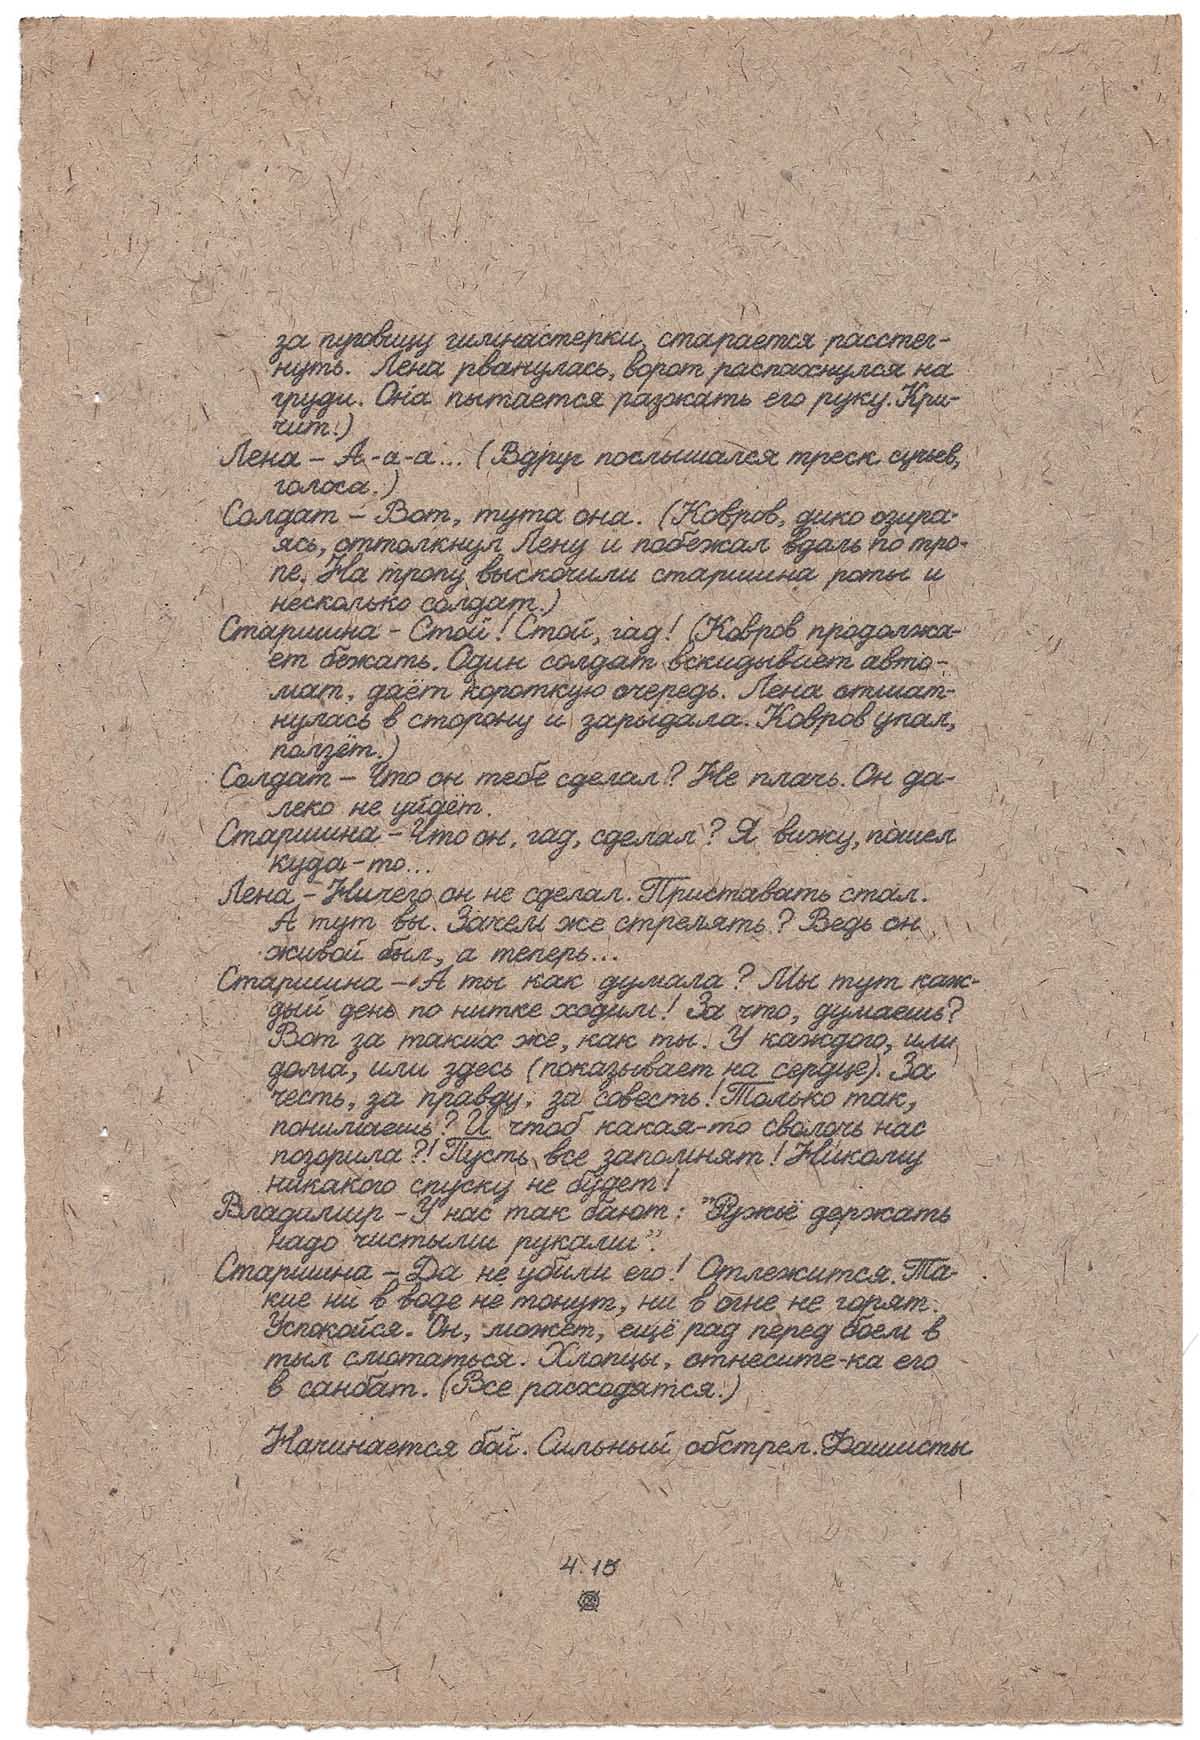 за пуговицу гимнастерки, старается расстег-
нуть. Лена рванулась, ворот распахнулся на
груди. Она пытается разжать его руку. Кри-
чит.)
Лена – А-а-а... (Вдруг послышался треск сучьев,
голоса.)
Солдат – Вот, тута она. (Ковров, дико озира-
ясь, оттолкнул Лену и побежал вдаль по тро-
пе. На тропу выскочили старшина роты и
несколько солдат.)
Старшина – Стой! Стой, гад! (Ковров продолжа-
ет бежать. Один солдат вскидывает авто-
мат, даёт короткую очередь. Лена отшат-
нулась в сторону и зарыдала. Ковров упал,
ползёт.)
Солдат – Что он тебе сделал? Не плачь. Он да-
леко не уйдёт.
Старшина – Что он, гад, сделал? Я вижу, пошел
куда-то...
Лена – Ничего он не сделал. Приставать стал.
А тут вы. Зачем же стрелять? Ведь он
живой был, а теперь...
Старшина – А ты как думала? Мы тут каж-
дый день по нитке ходим! За что, думаешь?
Вот за таких же, как ты. У каждого, или
дома, или здесь (показывает на сердце). За
честь, за правду, за совесть! Только так,
понимаешь? И чтоб какая-то сволочь нас
позорила?! Пусть все запомнят! Никому
никакого спуску не будет!
Владимир – У нас так бают: "Ружьё держать
надо чистыми руками".
Старшина – Да не убили его! Отлежится. Та-
кие ни в воде не тонут, ни в огне не горят.
Успокойся. Он, может, ещё рад перед боем в
тыл смотаться. Хлопцы, отнесите-ка его
в санбат. (Все расходятся.)
Начинается бой. Сильный обстрел. Фашисты